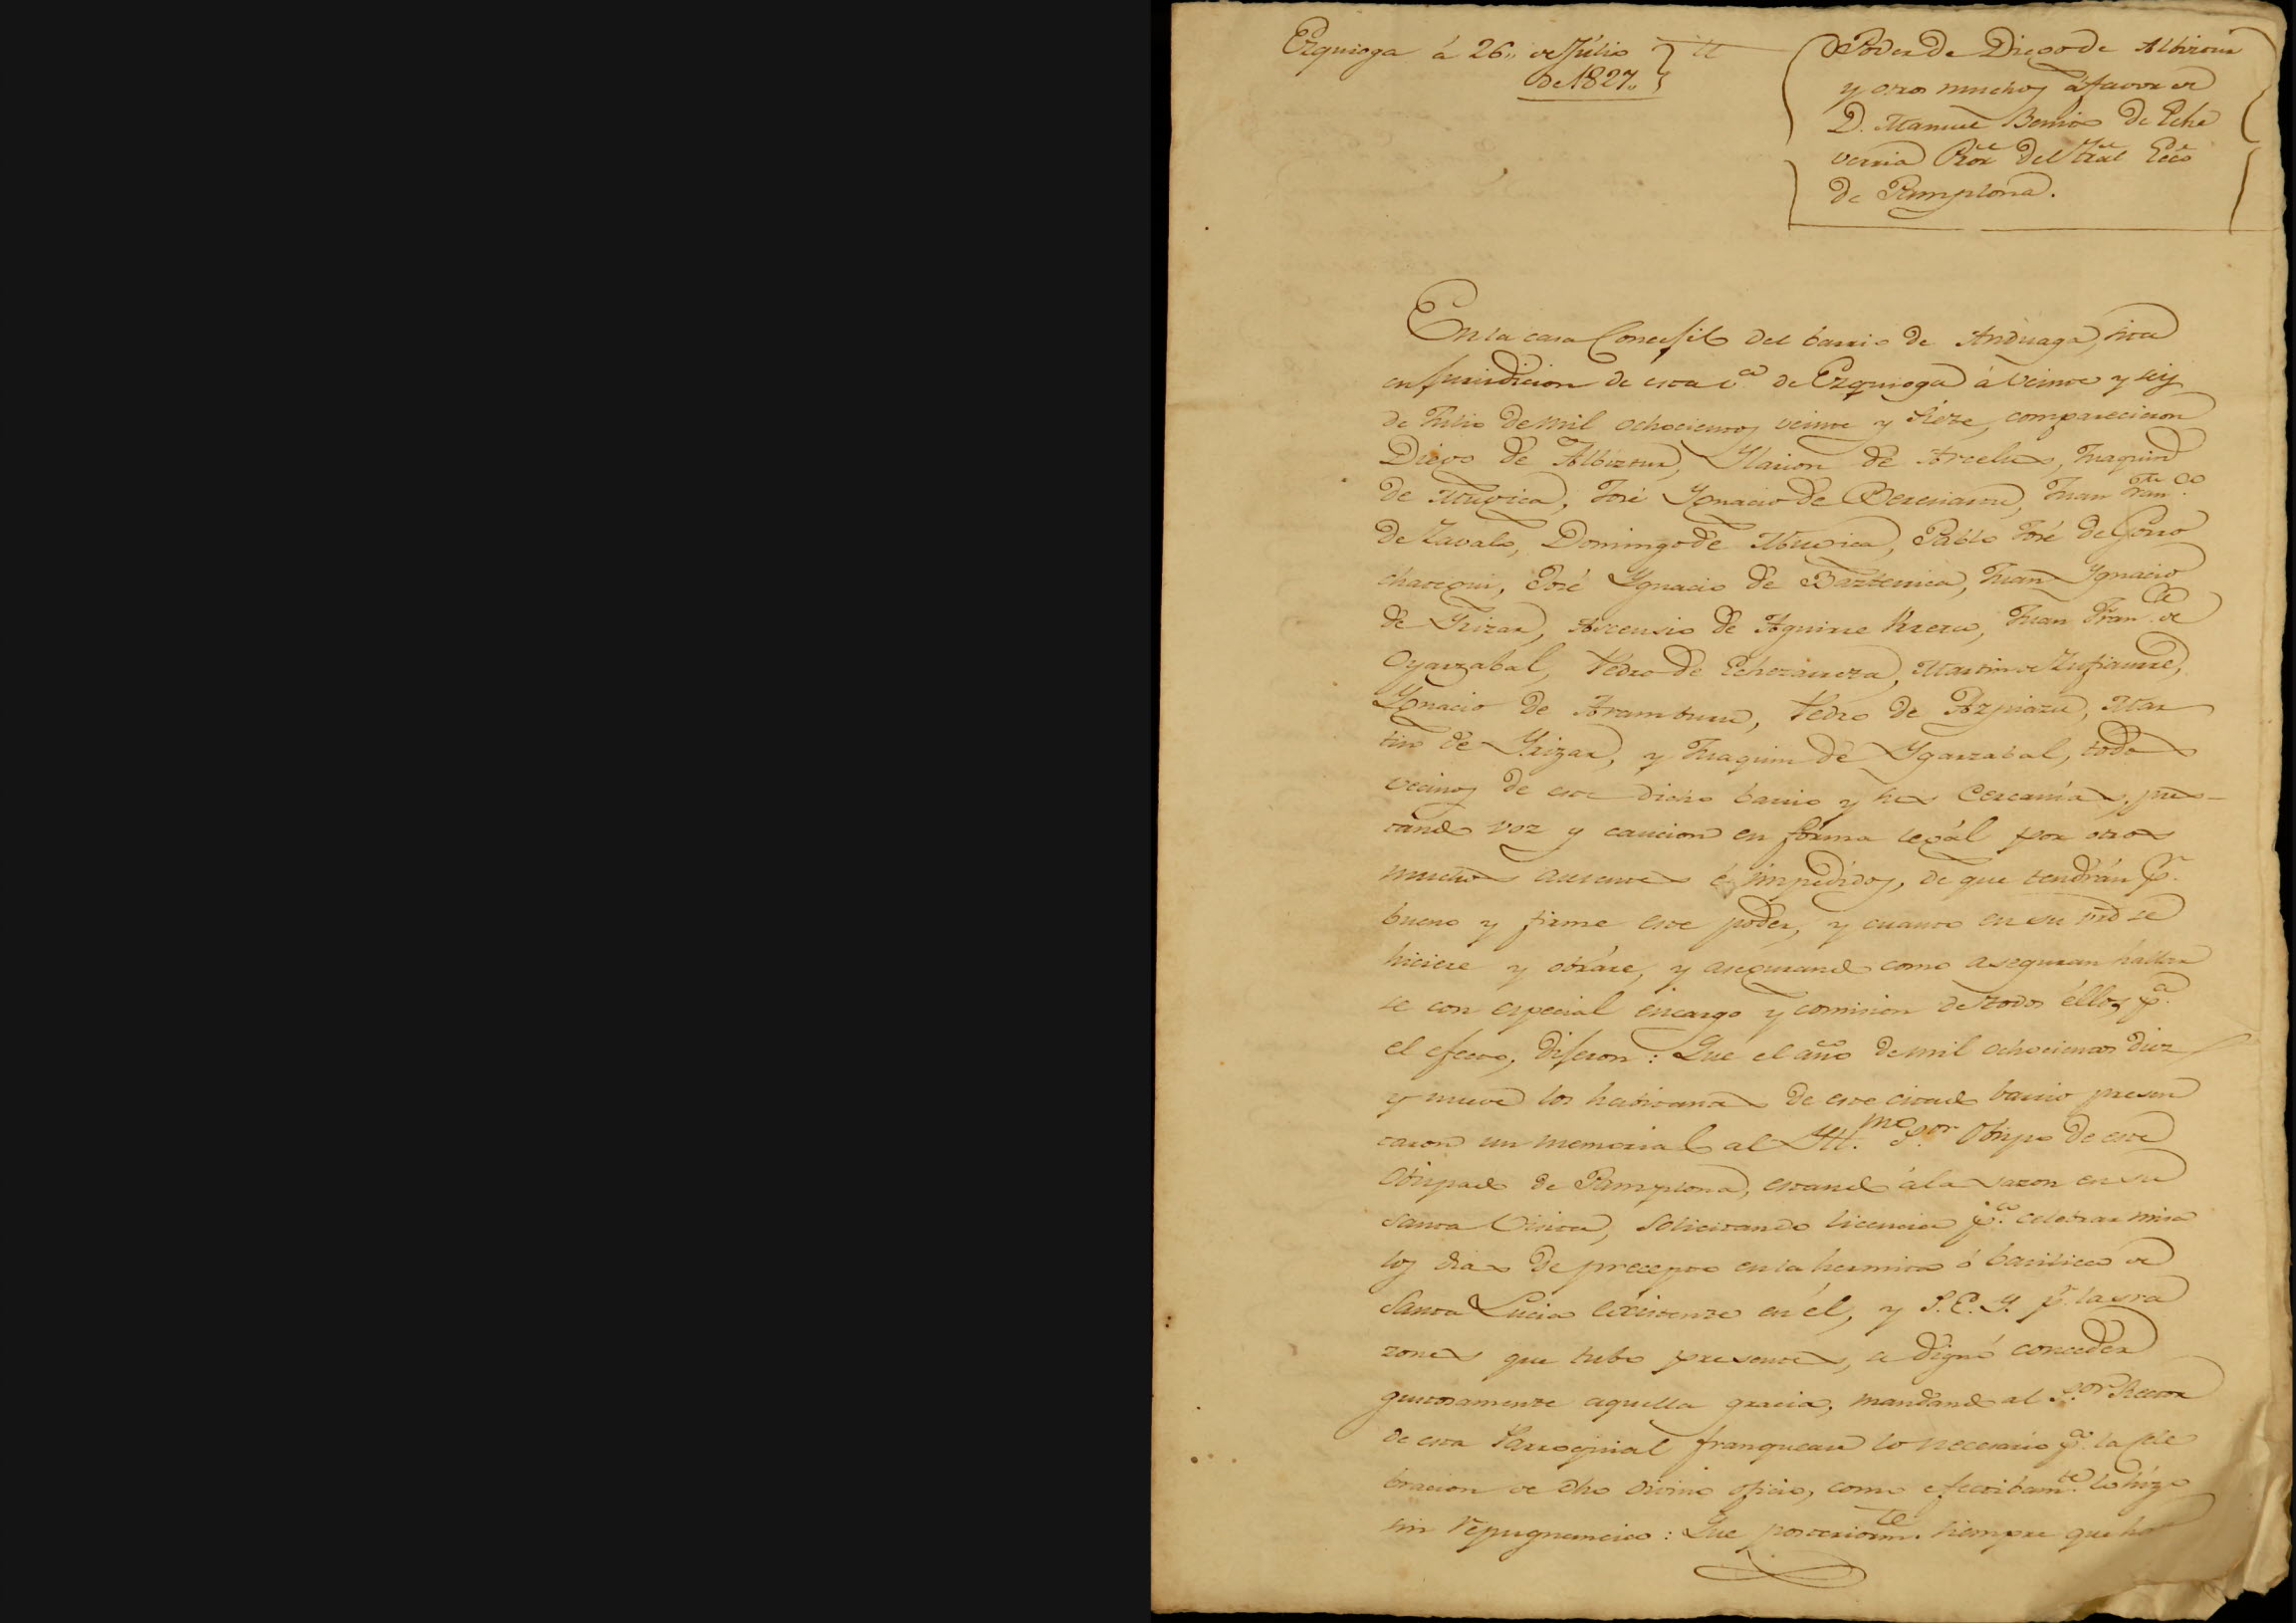 Ezquioga á 26,, de Júlio
de 1827,,
Poder de Diego de Albizтur
y otros muchos á favor de
D. Manuel Benito de Eche
verria Pror del Tral Ecco
de Pamplona.
En la casa Concejil del barrio de Anduaga, sita
en jurisdicion de esta va de Ezquioga á veinte y seis
de Julio de mil ochocientos veinte y siete, comparecieron
Diego de Albiztur, Ylarion de Arcelus, Juaquin
de Mugica, José Ygnacio de Bereciartu, Juan Franco
de Zavala, Domingo de Mugica, Pablo José de Gorro
chategui, José Ygnacio de Bazterrica, Juan Ygnacio
de Yrizar, Ascensio de Aguirre Urreta, Juan Franco de
Oyarzabal, Pedro de Echezarreta, Martin de Zufiaurre,
Ygnacio de Aramburu, Pedro de Azpiazu, Mar
tin de Yrizar, y Juaquin de Ygarzabal, todos
vecinos de este dicho barrio y sus Cercanías, pres-
tando voz y caucion en fórma legál por otros
muchos ausentes é impedidos, de que tendrán pr
bueno y firme este poder, y cuanto en su vrd se
hiciere y obráre, y asegurando como aseguran hallar
se con especial encargo y comision de todos éllos pa
el efecto, dijeron: Que el año de mil ochocientos diez
y nueve los habitantes de este citado barrio presen
taron un memorial al Yll.mo S.or Obispo de este
Obispado de Pamplona, estando á la sazon en su
santa Visita, solicitando licencia pa celebrar misa
los dias de precepto en la hermita ó basilica de
Santa Lucia existente en él, y S.E.Y. pr las ra
zones que tubo presentes, se dignó conceder
gustosamente aquella gracia, mandando al S.or Rector
de esta Parroquial franquear lo necesario pa la cele
bracion de dho divino oficio, como efectibam.te lo hizo
sin repugnancia: Que posteriorm.te siempre que